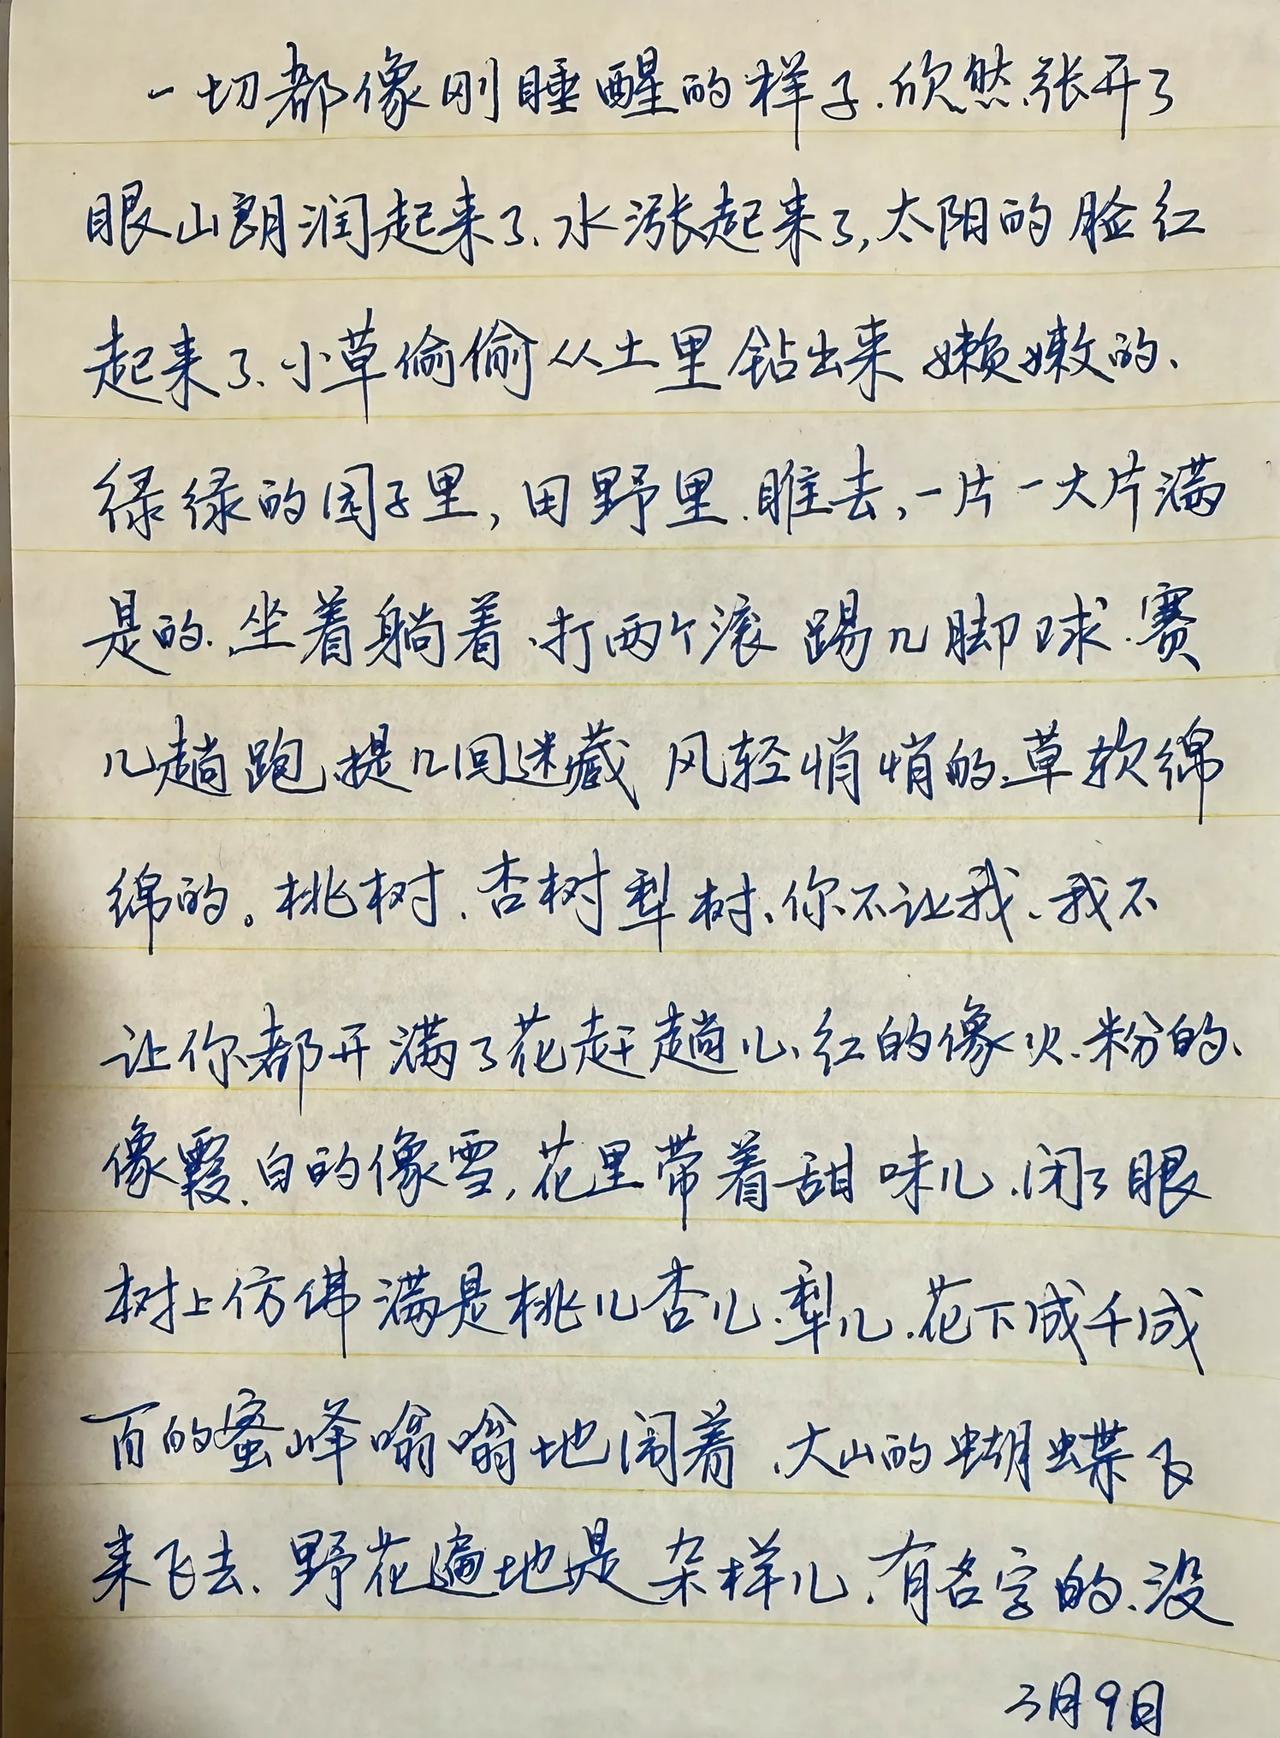 一切都像刚睡醒的样子、欣然张开了
眼山朗润起来了、水涨起来了,太阳的脸红
起来了、小草偷偷从土里钻出来嫩嫩的、
绿绿的园子里,田野里、瞧去,一片一大片满
是的、坐着躺着、打两个滚踢几脚球、赛
几趟跑、捉几回迷藏 风轻悄悄的、草软绵
绵的。桃树、杏树梨树、你不让我、我不
让你都开满了花赶趟儿、红的像火、粉的、
像霞、白的像雪,花里带着甜味儿、闭了眼
树上仿佛满是桃儿杏儿、梨儿、花下成千成
百的蜜蜂嗡嗡地闹着、大小的蝴蝶飞
来飞去、野花遍地是杂样儿、有名字的、没
3月9日